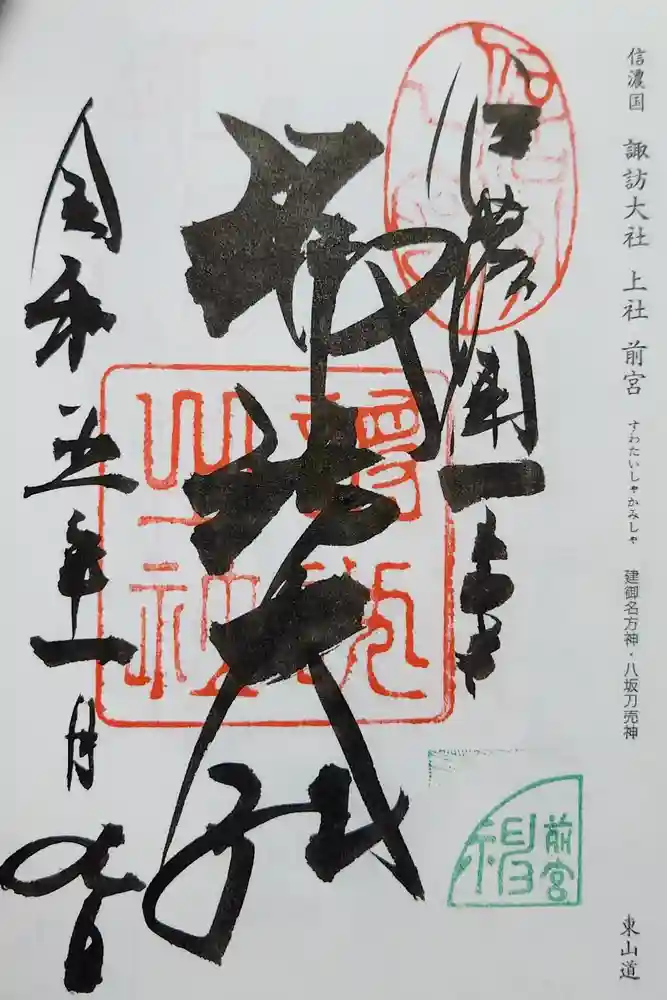 信濃国 諏訪大社 上社 前宮 すわたいしゃかみしゃ 建御名方神・八坂刀売神 東山道
信濃国一宮
諏訪大社
令和五年一月
前宮